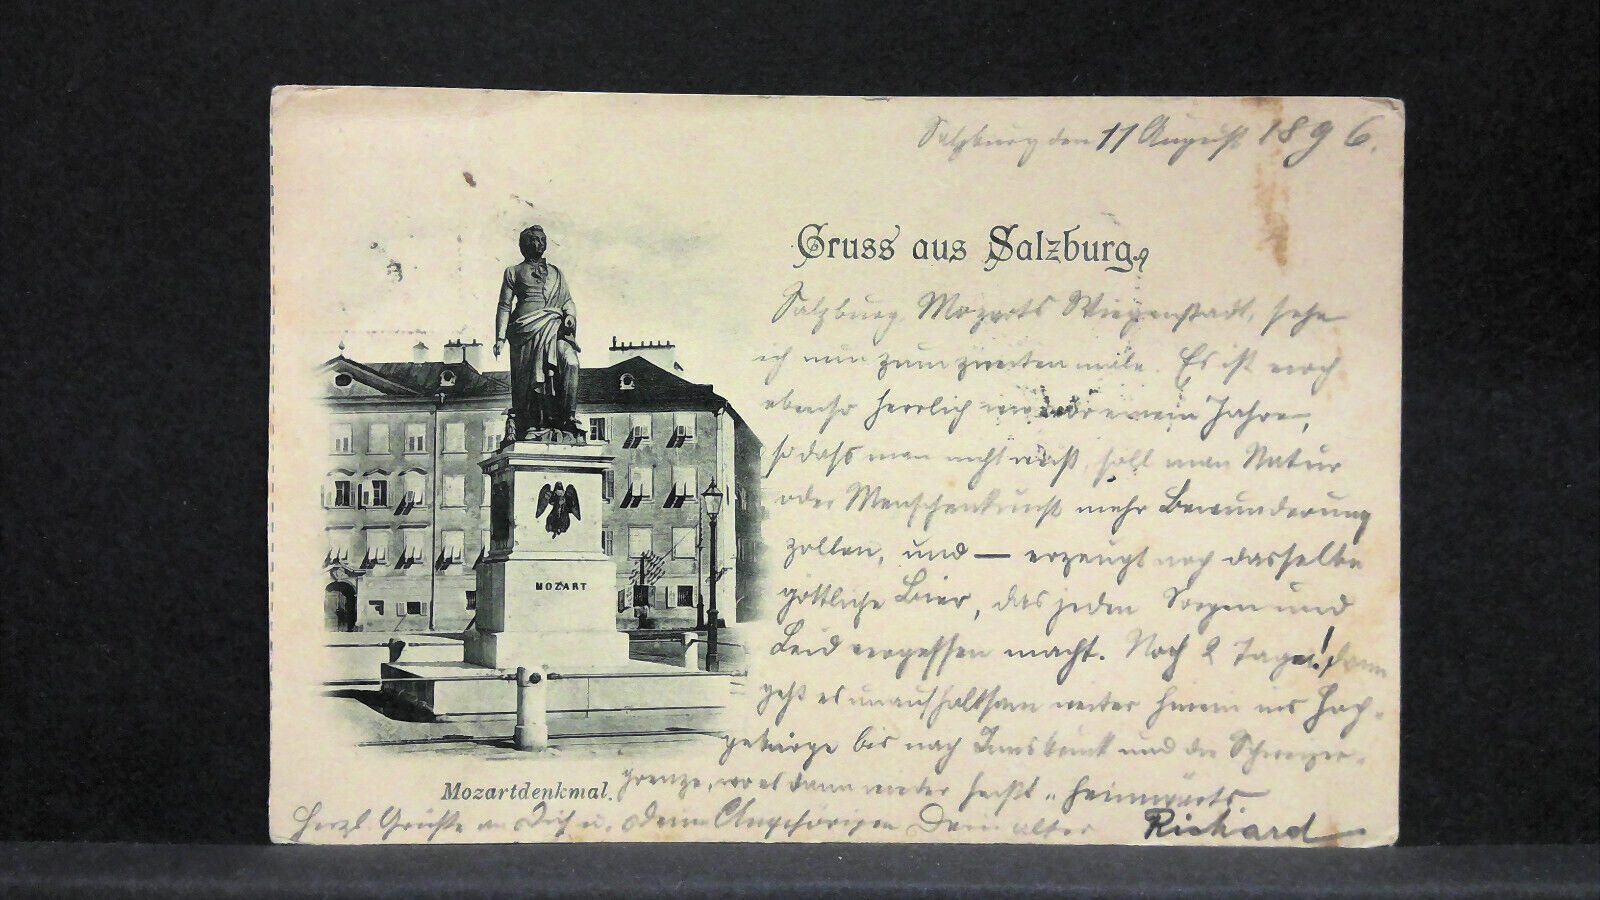 Salzburg den 11 August 1896.
Gruss aus Salzburg.
Salzburg, Mozarts Wiegenstadt, sehe
ich nun zum zweiten male. Es ist noch
ebenso herrlich wie vor einem Jahre,
sodass man nicht weiß, soll man Natur
oder Menschenkunst mehr Bewunderung
zollen, und — erzeugt noch dasselbe
göttliche Bier, das jeden Sorgen und
Leid vergessen macht. Noch 2 Tage! dann
geht es unaufhaltsam weiter hinein ins Hoch-
gebirge bis nach Innsbruck und die Schweizer-
grenze, wo es dann wieder heißt „heimwärts.
Herzl. Grüße an Dich u. Deine Angehörigen Dein alter Richard
MOZART
Mozartdenkmal.